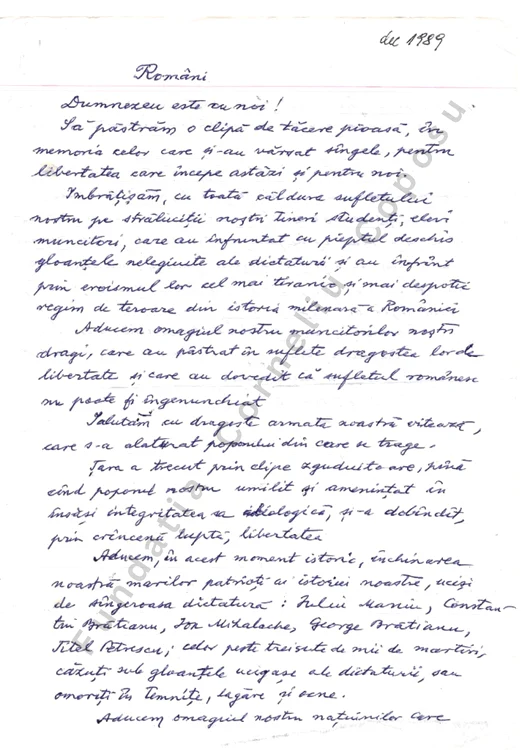 dec 1989
Români
Dumnezeu este cu noi!
Să păstrăm o clipă de tăcere pioasă, în
memoria celor care și-au vărsat sîngele, pentru
libertatea care începe astăzi și pentru noi.
Îmbrățișăm, cu toată căldura sufletului
nostru pe străluciții noștri tineri studenți, elevi
muncitori, care au înfruntat cu pieptul deschis
gloanțele nelegiuite ale dictaturii și au înfrînt
prin eroismul lor cel mai tiranic și mai despotic
regim de teroare din istoria milenară a României
Aducem omagiul nostru muncitorilor noștri
dragi, care au păstrat în suflete dragostea lor de
libertate și care au dovedit că sufletul românesc
nu poate fi îngenunchiat
Salutăm cu dragoste armata noastră vitează,
care s-a alăturat poporului din care se trage.
Țara a trecut prin clipe zguduitoare, pînă
cînd poporul nostru umilit și amenințat în
însăși integritatea sa biologică, și-a dobîndit,
prin crîncenă luptă, libertatea
Aducem, în acest moment istoric, închinarea
noastră marilor patrioți ai istoriei noastre, uciși
de sîngeroasa dictatură: Iuliu Maniu, Constan-
tin Brătianu, Ion Mihalache, George Brătianu,
Titel Petrescu; celor peste trei sute de mii de martiri,
căzuți sub gloanțele ucigașe ale dictaturii, sau
omorîți în temnițe, lagăre și ocne.
Aducem omagiul nostru națiunilor care
Fundatia Corneliu Coposu